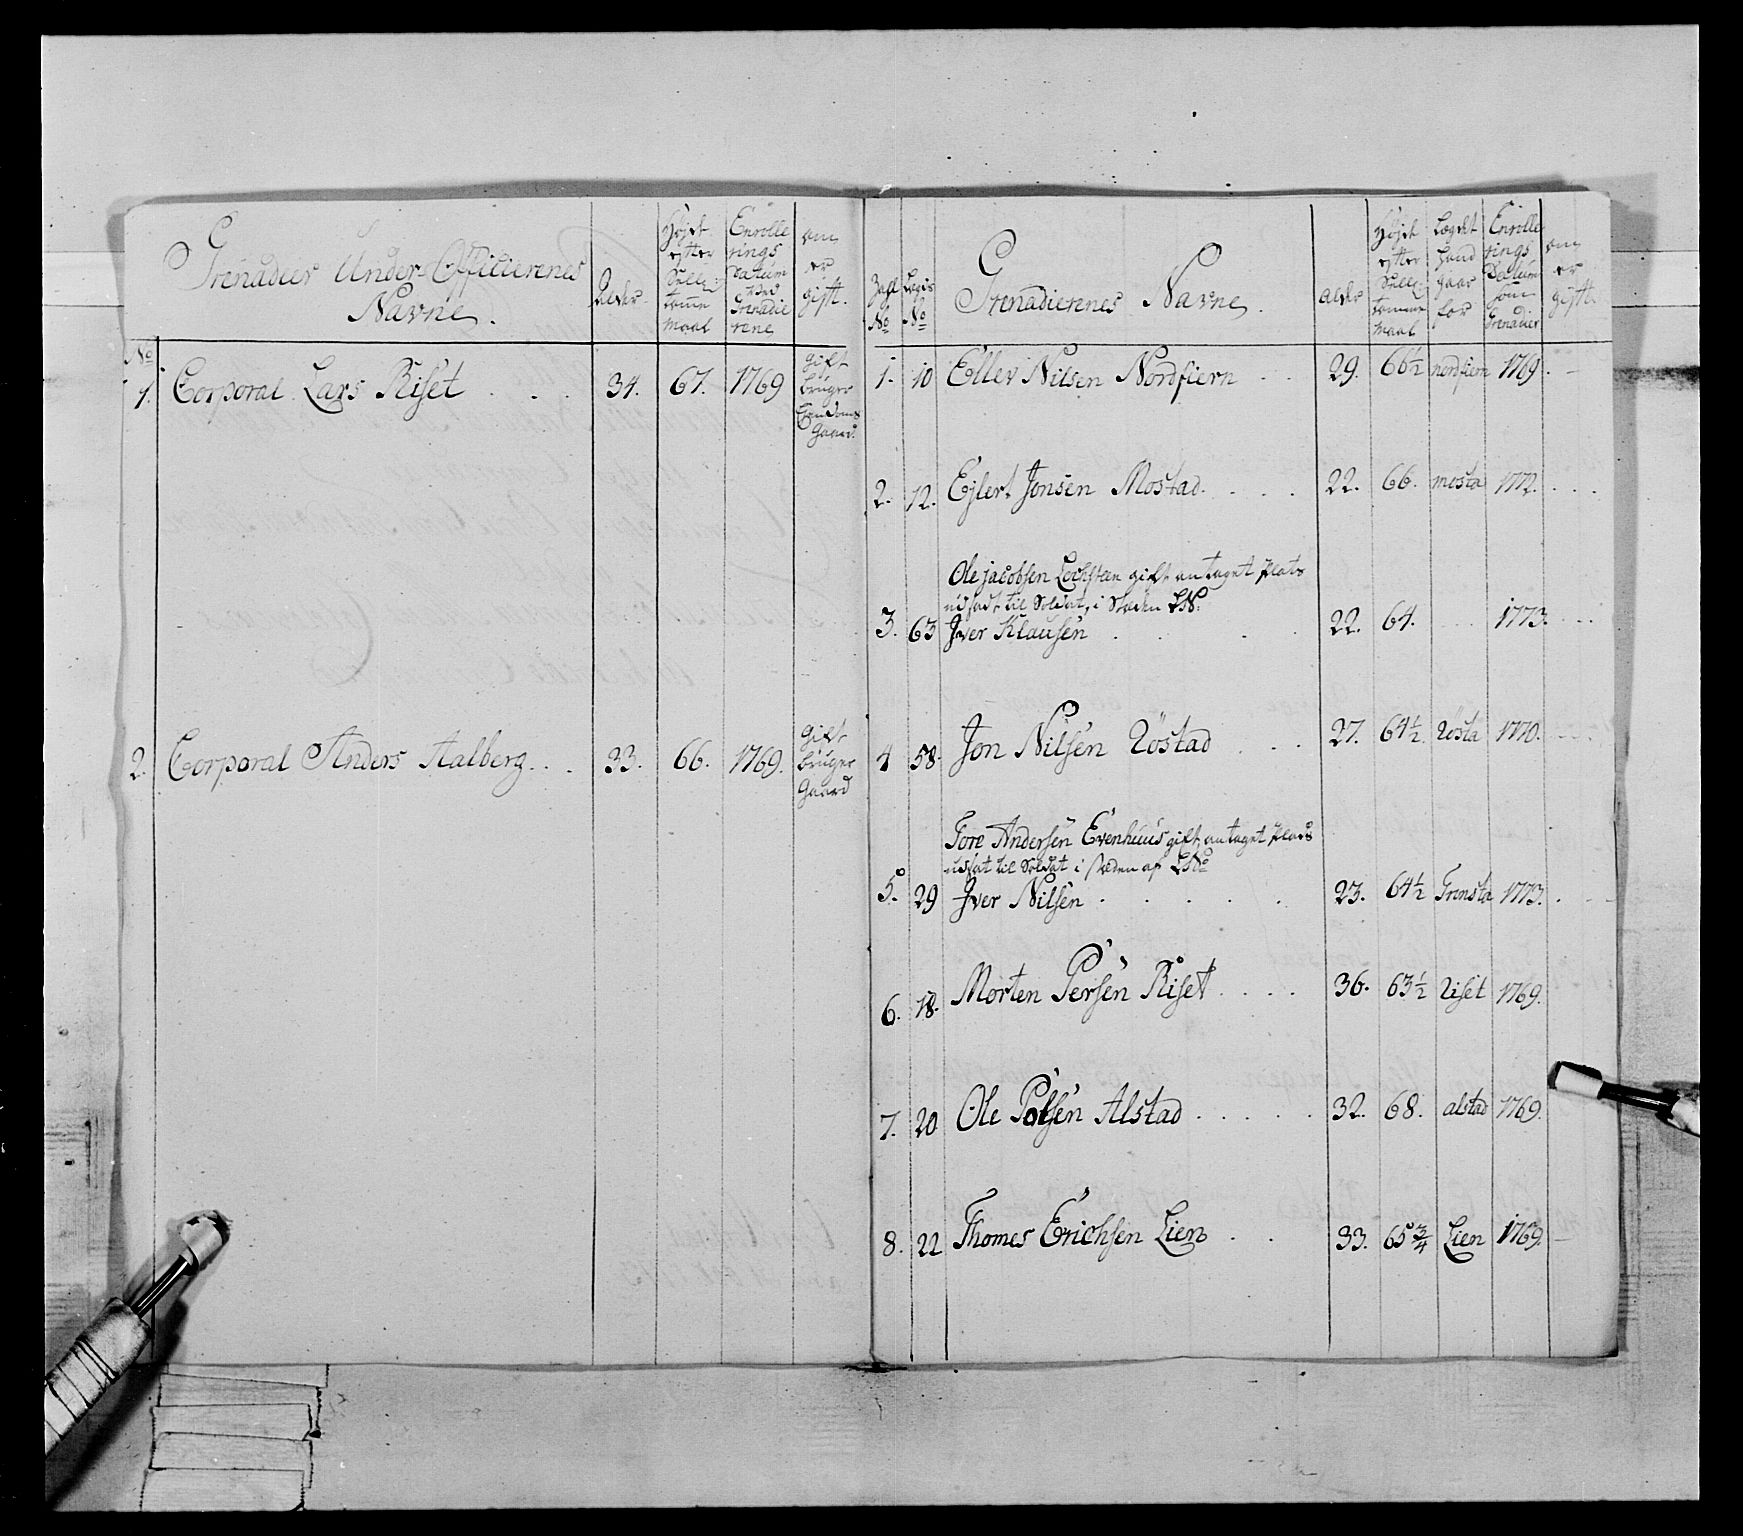 Grenadeer Under-Officierenes
Navne.
Alder.
Højde
efter
Selle:
tomme
Maal
Enrolle
rings
Datum
ved
Grenadie
rene
om
er
gift.
No
1. Corporal Lars Riset . . . 34. 67. 1769
gift
bruger
Gaard.
2. Corporal Anders Aalberg . . . 33. 66. 1769.
gift
bruger
Gaard
No
Lægds
No
Grenadierenes Navne.
alder
Højde
efter
Selle:
tomme
Maal
Lægdet
hand
gaar
for
Enrolle
rings
Datum
som
Grenadier
om
er
gift.
1. 10 Ellev Nilsen Nordfiern . . 29. 66½ nordfiern 1769. -
2. 12. Ejlert Jonsen Mostad. . . . 22. 66. mosta 1772. . . .
Ole jacobsen Lochstæn gift antaget Plats
udsadt til Soldat, i Stæden LN:
3. 63 Iver Klausen . . . . 22. 64. . . . 1773. . . .
4 58. Jon Nilsen Röstad . . . 27. 64½ Rösta 1770. . . .
Tore Andersen Evenhuus gift, antaget Plads
udsat til Soldat i stæden af LNo
5. 29 Iver Nilsen . . . . . 23. 64½ Trønsta 1773. . . .
6. 18. Morten Persen Riset . . . . 36. 63½ Riset 1769.
7. 20 Ole Polsen Alstad . . . . . 32. 68. alstad 1769.
8. 22 Thomes Erichsen Lien . . 33. 65¾ Lien 1769. -